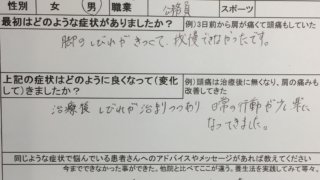 性別 女 男 職業 公務員 スポーツ
最初はどのような症状がありましたか? 例)3日前から肩が痛くて頭痛もしていた
脚のしびれがきつくて、我慢できなかったです。
上記の症状はどのように良くなって(変化して)きましたか? 例)頭痛は治療後に無くなり、肩の痛みも改善してきた
治療後しびれが治まりつつあり 日常の行動が少し楽に
なってきました。
同じような症状で悩んでいる患者さんへのアドバイスやメッセージがあれば教えてください
今までできなかった事ができた。他院と比べてここが違う。養生法を実践してみて等々、